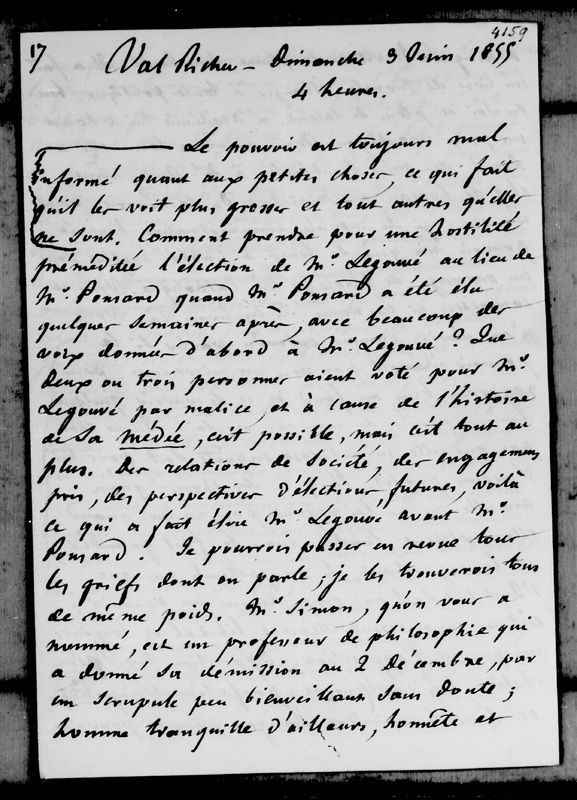 4159
17 Val Richer - Dimanche 3 Juin 1855
4 heures.
Le pouvoir est toujours mal
informé quant aux petites choses, ce qui fait
qu'il les voit plus grosses et tout autres qu'elles
ne sont. Comment prendre pour une hostilité
préméditée l'élection de Mr. Legouvé au lieu de
Mr. Ponsard quand Mr. Ponsard a été élu
quelques semaines après, avec beaucoup des
voix données d'abord à Mr. Legouvé ? Que
deux ou trois personnes aient voté pour Mr.
Legouvé par malice, et à cause de l'histoire
de sa Médée, c'est possible, mais c'est tout au
plus. Des relations de société, des engagemens
pris, des perspectives d'élections futures, voilà
ce qui a fait élire Mr. Legouvé avant Mr.
Ponsard. Je pourrois passer en revue tous
les griefs dont on parle ; je les trouverois tous
de même poids. Mr. Simon, qu'on vous a
nommé, est un professeur de philosophie qui
a donné sa démission au 2 Décembre, par
un scrupule peu bienveillant sans doute ;
homme tranquille d'ailleurs, honnête et